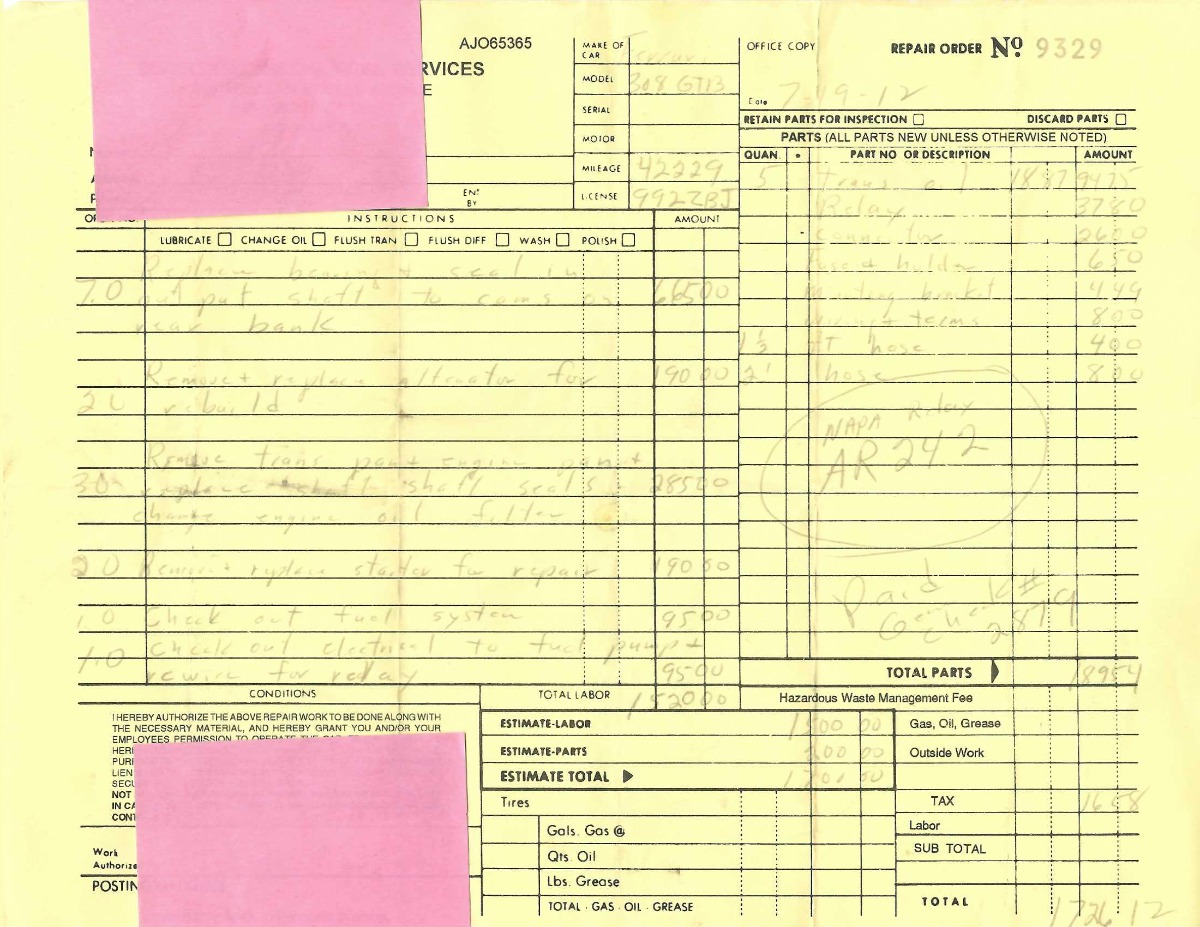 AJO65365
RVICES
E
MAKE OF CAR Ferrari
MODEL 308 GTB
SERIAL
MOTOR
MILEAGE 42229
LICENSE 992ZBJ
ENT BY
OFFICE COPY
REPAIR ORDER Nº 9329
Date 7-19-12
RETAIN PARTS FOR INSPECTION DISCARD PARTS
PARTS (ALL PARTS NEW UNLESS OTHERWISE NOTED)
QUAN. * PART NO OR DESCRIPTION AMOUNT
5 trans 94 75
Relay 37 80
connector 26 00
fuse + holder 6 50
Mounting bracket 4 49
wiring + terms 8 00
1 1/2 FT hose 4 00
2' hose 8 00
NAPA Relay
AR 242
Paid
2879
TOTAL PARTS 189 54
INSTRUCTIONS AMOUNT
LUBRICATE CHANGE OIL FLUSH TRAN FLUSH DIFF WASH POLISH
Replace bearing + seal in
7.0 out put shaft to cams on 665 00
rear bank
Remove + replace alternator for 190 00
2.0 rebuild
Remove trans pan + engine pan +
3.0 replace shaft seals + 285 00
change engine oil filter
2.0 Remove + replace starter for repair 190 00
1.0 Check out fuel system 95 00
Check out electrical to fuel pump +
1.0 rewire for relay 95 00
CONDITIONS
TOTAL LABOR 1520 00
I HEREBY AUTHORIZE THE ABOVE REPAIR WORK TO BE DONE ALONG WITH
THE NECESSARY MATERIAL, AND HEREBY GRANT YOU AND/OR YOUR
EMPLOYEES PERMISSION TO OPERATE THE
HER
PUR
LIEN
SECU
NOT
IN CA
CONT
Work
Authorize
POSTIN
ESTIMATE-LABOR 1500 00
ESTIMATE-PARTS 200 00
ESTIMATE TOTAL 1700 00
Tires
Gals. Gas @
Qts. Oil
Lbs. Grease
TOTAL - GAS - OIL - GREASE
Hazardous Waste Management Fee
Gas, Oil, Grease
Outside Work
TAX 16 58
Labor
SUB TOTAL
TOTAL 1726 12